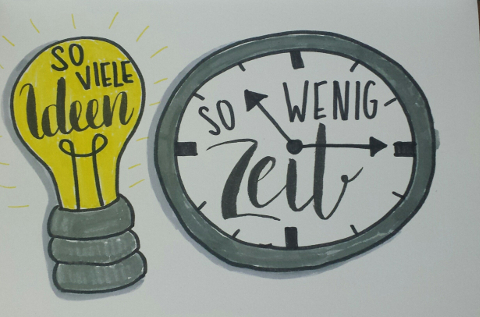 SO
VIELE
Ideen
SO WENIG
Zeit